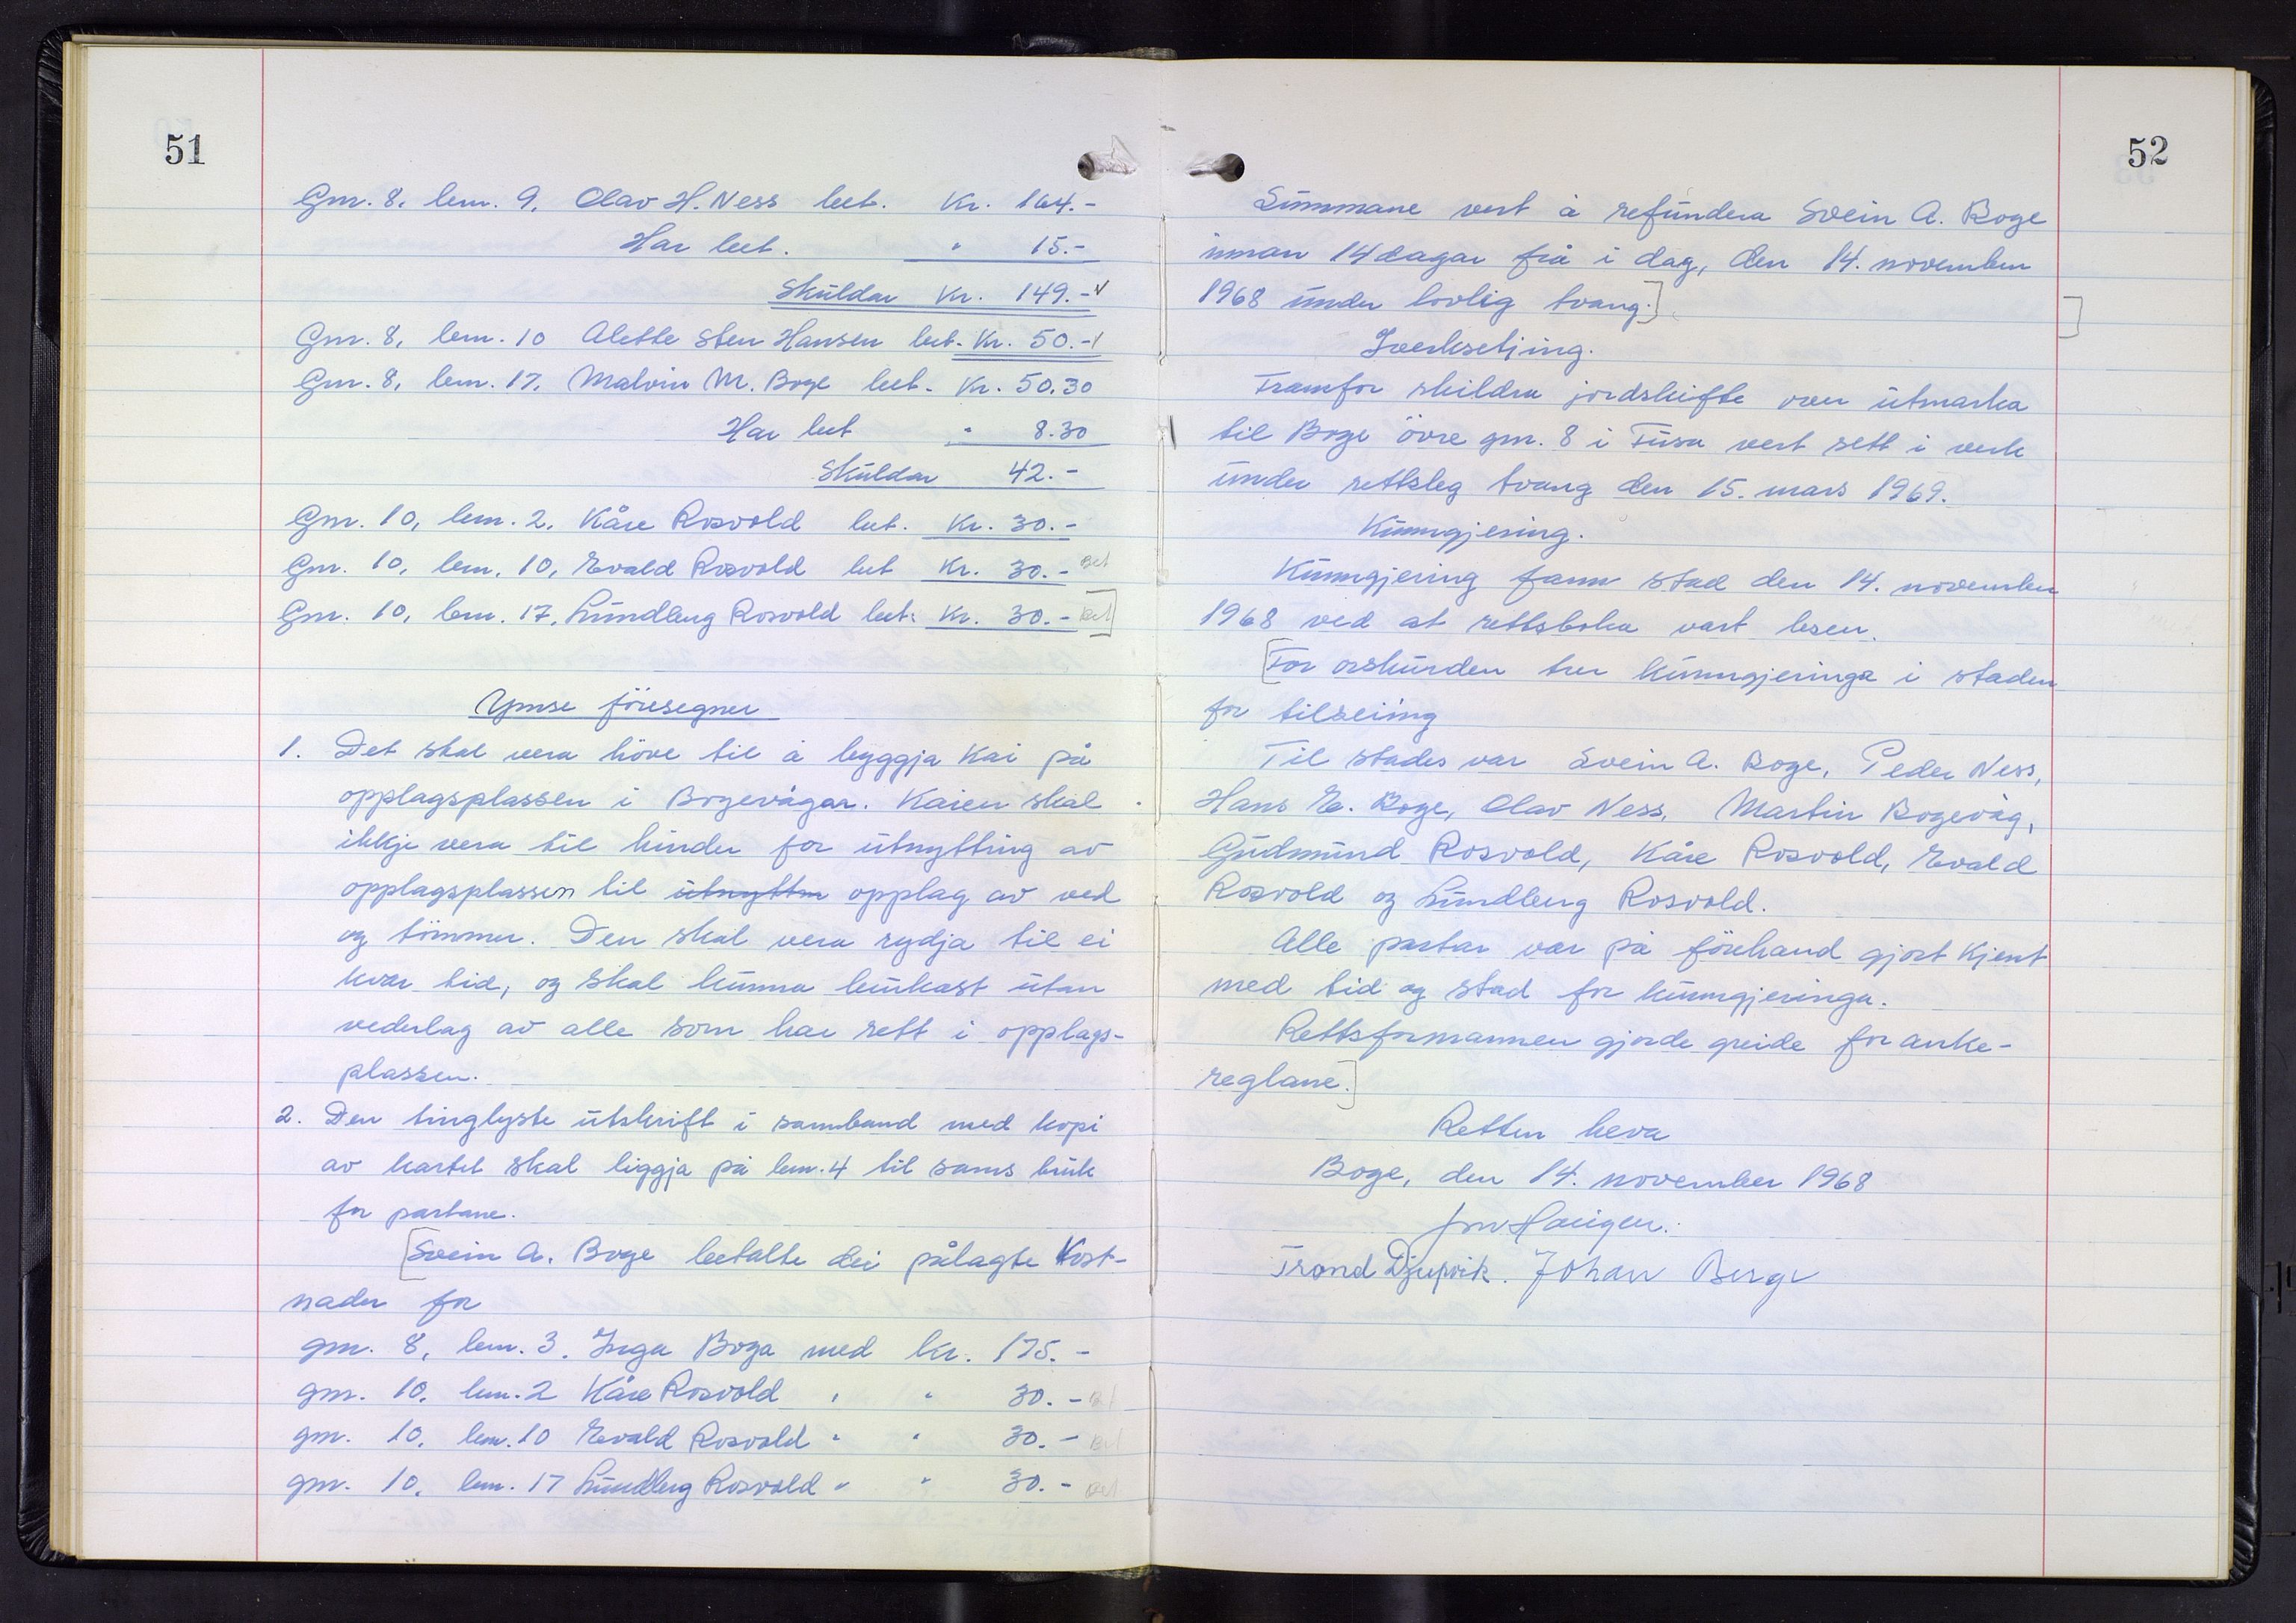 51
Gnr. 8, bnr. 9. Olav H. Ness bet. Kr. 164.-
Har bet. " 15.-
Skuldar Kr. 149.-
Gnr. 8, bnr. 10 Alette Sten Hansen bet. Kr. 50.-
Gnr. 8, bnr. 17. Malvin M. Boge bet. Kr. 50.30
Har bet " 8.30
Skuldar 42.-
Gnr. 10, bnr. 2. Kåre Rosvold bet. Kr. 30.-
Gnr. 10, bnr. 10, Evald Rosvold bet Kr. 30.- Bet
Gnr. 10, bnr. 17. Lundberg Rosvold bet. Kr. 30.- Bet]
Ymse föresegner
1. Det skal vera höve til å byggja kai på
opplagsplassen i Bogevågen. Kaien skal
ikkje vera til hinder for utnytting av
opplagsplassen til utnyttin opplag av ved
og tömmer. Den skal vera rydja til ei
kvar tid, og skal kunna brukast utan
vederlag av alle som har rett i opplags-
plassen.
2. Den tinglyste utskrift i samband med kopi
av kartet skal liggja på bnr. 4 til sams bruk
for partane.
[Svein A. Boge betalte dei pålagte kost-
nader for
gnr. 8, bnr. 3. Inga Boga med kr. 175.-
gnr. 10, bnr. 2 Kåre Rosvold " " 30.- Bet
gnr. 10, bnr. 10 Evald Rosvold " " 30.- Bet
gnr. 10, bnr. 17 Lundberg Rosvold " " 30.- Bet
52
Summane vert å refundera Svein A. Boge
innan 14 dagar frå i dag, den 14. november
1968 under lovlig tvang.]
Iverksetjing.
Framfor skildra jordskifte over utmarka
til Boge övre gnr. 8 i Fusa vert sett i verk
under rettsleg tvang den 15. mars 1969.
Kunngjering.
Kunngjering fann stad den 14. november
1968 ved at rettsboka vart lesen.
[For orskurden trer kunngjeringa i staden
for tilseiing
Til stades var Svein A. Boge, Peder Ness,
Hans E. Boge, Olav Ness, Martin Bogevåg,
Gudmund Rosvold, Kåre Rosvold, Evald
Rosvold og Lundberg Rosvold.
Alle partar var på förehand gjort kjent
med tid og stad for kunngjeringa.
Rettsformannen gjorde greide for anke-
reglane.]
Retten heva
Boge, den 14. november 1968
Jon Haugen.
Trond Djupvik. Johan Berge